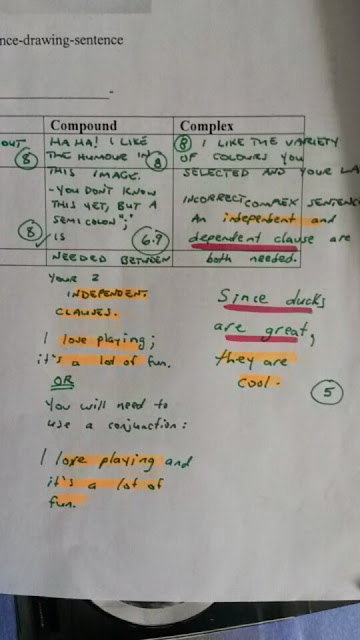 nce-drawing-sentence
Compound
Complex
OUT
8
HA HA! I LIKE
THE HUMOUR IN
8
THIS IMAGE.
-YOU DON'T KNOW
THIS YET, BUT A
SEMICOLON ";"
IS
8
6.9
NEEDED BETWEEN
YOUR 2
INDEPENDENT
CLAUSES.
I love playing;
it's a lot of fun.
OR
You will need to
use a conjunction:
I love playing and
it's a lot of
fun.
8
I LIKE THE VARIETY
OF COLOURS YOU
SELECTED AND YOUR LA
INCORRECT COMPLEX SENTENC
An independent and
dependent clause are
both needed.
Since ducks
are great,
they are
cool.
5